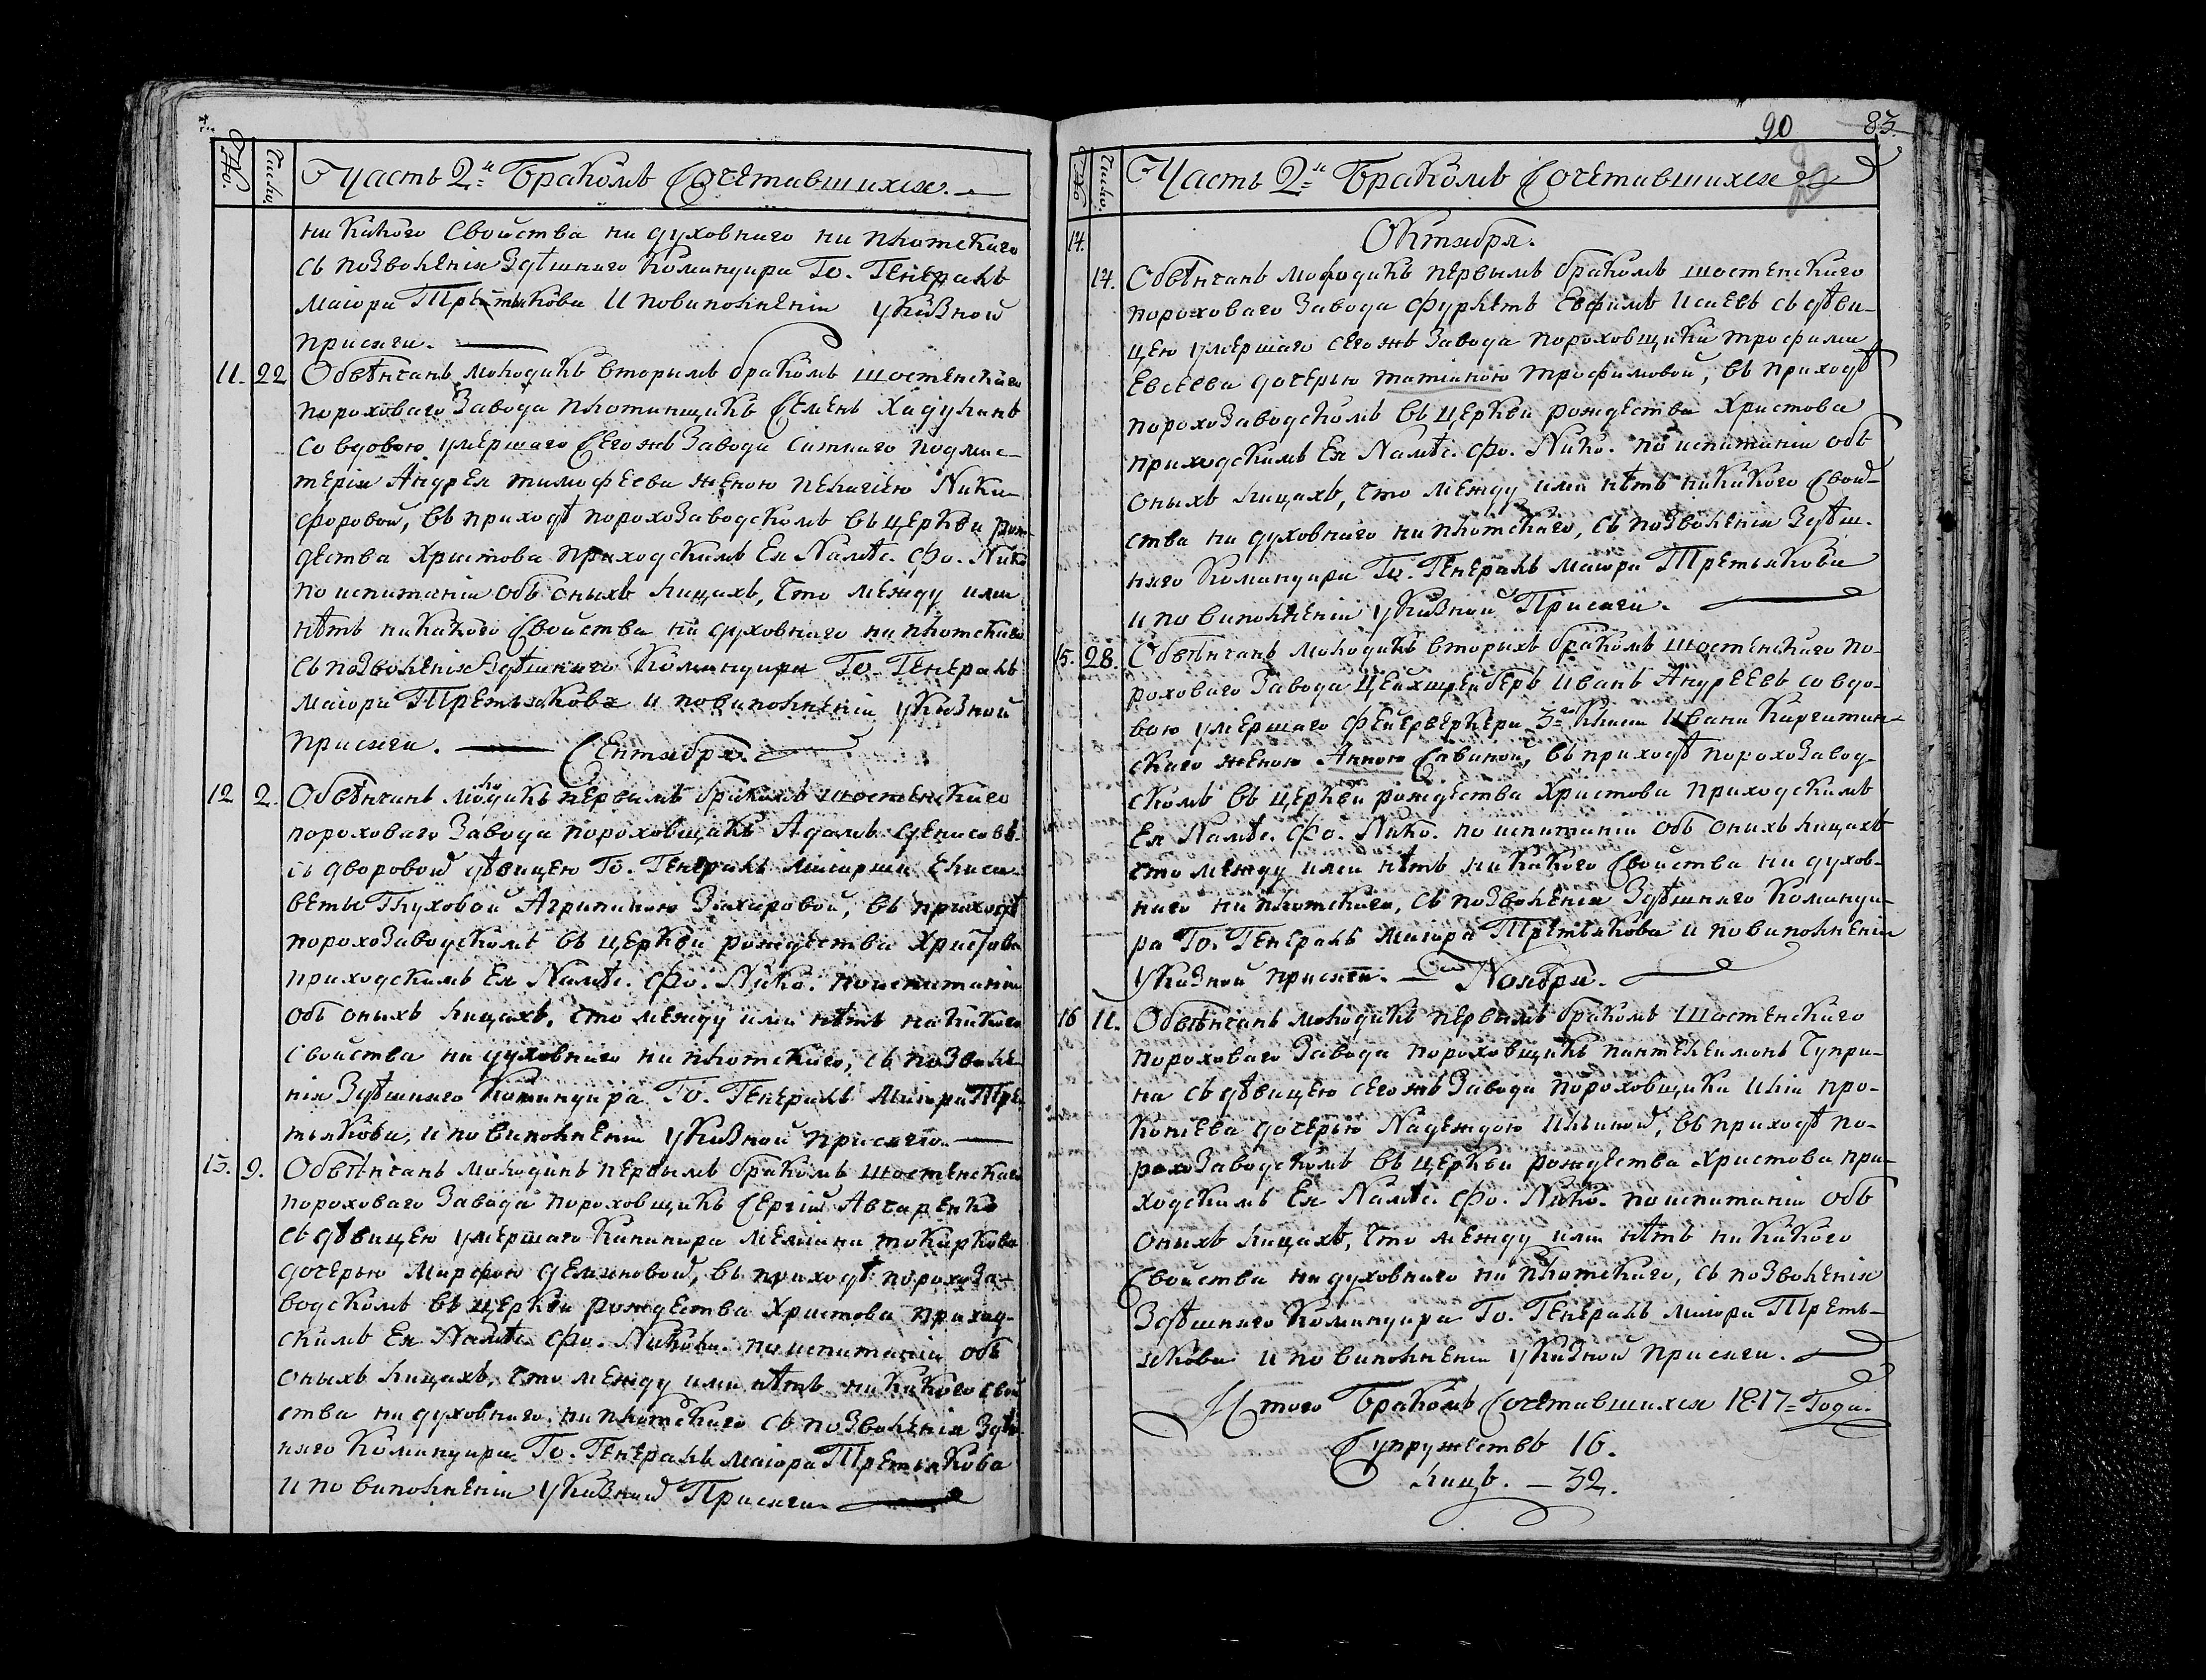 №.
Числа.
Часть 2я Бракомъ Сочетавшихся.
никакого Свойства ни духовнаго ни плотскаго
съ позволенія Здѣшняго Командира Го. Генералъ
маіора Третьякова и повиполненіи указной
присяги.
11. 22 Обвѣнчанъ молодикъ вторымъ бракомъ шостенскаго
пороховаго Завода плотинщикъ Семенъ Хадукинъ
со вдовою умершаго Сегожъ Завода ситнаго подмас-
терія Андрея тимофеева женою пелагіею Ники-
форовой, въ приходѣ порохозаводскомъ въ церкви рож-
дества Христова приходскимъ Ея Намѣс. Фо. Нико
по испитаніи объ оныхъ лицахъ, что между ими
нѣтъ никакого Свойства ни духовнаго ни плотскаго
съ позволенія Здѣшняго Командира Го. Генералъ
маіора Третьякова и повиполненіи указной
присяги. Сентября.
12 2. Обвѣнчанъ молодикъ первымъ бракомъ шостенскаго
пороховаго Завода пороховщикъ Адамъ Денисовъ
съ дворовой дѣвицею Го. Генералъ маіорши Елиса-
веты Глуховой Агрипиною Захаровой, въ приходѣ
порохозаводскомъ въ церкви рождества Христова
приходскимъ Ея Намѣс. Фо. Нико. по испитаніи
объ оныхъ лицахъ, что между ими нѣтъ никакого
свойства ни духовнаго ни плотскаго, съ позволе-
нія Здѣшняго Командира Го. Генералъ Маіора Тре-
тьякова, и по виполненіи указной присяги.
13. 9. Обвѣнчанъ молодикъ первымъ бракомъ шостенскаго
пороховаго Завода пороховщикъ Сергій Авсаренко
съ дѣвицею умершаго Канонира Меліана токарkова
дочерью Марфою Демяновой, въ приходѣ порохоза-
водскомъ въ церкви рождества Христова приход-
скимъ Ея Намѣс. Фо. Никова. по испитаніи объ
оныхъ лицахъ, что между ими нѣтъ никакого свой
ства ни духовнаго ни плотскаго съ позволенія Здѣ-
няго Командира Го. Генералъ маіора Третьякова
и по виполненіи указной Присяги.
90 83.
№
Число.
Часть 2я Бракомъ Сочетавшихся
14. Октября.
14. Обвѣнчанъ молодикъ первымъ бракомъ шостенскаго
пороховаго Завода фурлетъ Евфимъ Исаевъ съ дѣви-
цею умершаго сегожъ Завода пороховщика трофима
Евсеева дочерью татіяною трофимовой, въ приходѣ
порохозаводскомъ въ церкви рождества Христова
приходскимъ Ея Намѣс. Фо. Нико. по испитаніи объ
оныхъ лицахъ, что между ими нѣтъ никакого Свой-
ства ни духовнаго ни плотскаго, съ позволенія Здѣш-
няго Командира Го. Генералъ маіора Третьякова
и по виполненіи указной Присяги.
15. 28. Обвѣнчанъ молодикъ вторыхъ бракомъ шостенскаго по-
роховаго Завода Цейхшрейберъ Иванъ Андреевъ со вдо-
вою умершаго Фейерверкера 3го Класа Ивана Каргатин-
скаго женою Анною Савиной, въ приходѣ порохозавод-
скомъ въ церкви рождества Христова приходскимъ
Ея Намѣс. Фо. Нико. по испитаніи объ оныхъ лицахъ
что между ими нѣтъ никакого Свойства ни духов-
наго ни плотскаго, съ позволенія Здѣшняго Команди-
ра Го. Генералъ Маіора Третьякова и по виполненіи
указной присяги. Ноября.
16 11. Обвѣнчанъ молодикъ первымъ бракомъ шостенскаго
пороховаго Завода пороховщикъ пантелеимонъ Чупри-
на съ дѣвицею сегожъ Завода пороховщика иліи про-
копіева дочерью Надеждою Ильиной, въ приходѣ по-
рохозаводскомъ въ церкви рождества Христова при-
ходскимъ Ея Намѣс. Фо. Нико. по испитаніи объ
оныхъ лицахъ, что между ими нѣтъ никакого
Свойства ни духовнаго ни плотскаго, съ позволенія
Здѣшняго Командира Го. Генералъ маіора Треть-
якова и по виполненіи указной присяги.
Итого Бракомъ Сочетавшихся 1817 Года.
Супружествъ 16.
лицъ. — 32.